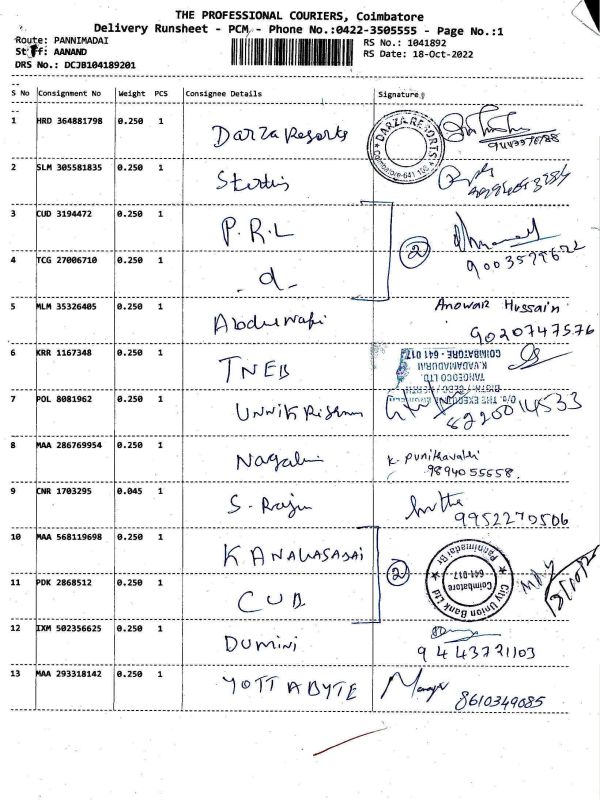 THE PROFESSIONAL COURIERS, Coimbatore
Delivery Runsheet - PCM - Phone No.:0422-3505555 - Page No.:1
Route: PANNIMADAI
RS No.: 1041892
Staff: AANAND
RS Date: 18-Oct-2022
DRS No.: DCJB104189201
S No Consignment No Weight PCS Consignee Details Signature
1 HRD 364881798 0.250 1 Darza Resorts
DARZA RESORTS
Coimbatore-641
2 SLM 305581835 0.250 1
3 CUD 3194472 0.250 1 P.R.L
2
4 TCG 27006710 0.250 1 - d -
5 MLM 35326405 0.250 1 Anowar Hussain
9020747576
6 KRR 1167348 0.250 1 TNEB
TANGEDCO LTD.
K.VADAMADURAI
COIMBATORE - 641 017.
7 POL 8081962 0.250 1 Unnikrishnan
8220014533
8 MAA 286769954 0.250 1 K. Punitkavathi
9894055558.
9 CNR 1703295 0.045 1 S. Raju
9952270506
10 MAA 568119698 0.250 1
City Union Bank Ltd
Pannimadai Br
Coimbatore
641-017.
2
11 PDK 2868512 0.250 1 CUB
12 IXM 502356625 0.250 1 Dumini
9443721103
13 MAA 293318142 0.250 1 YOTTABYTE
8610349085